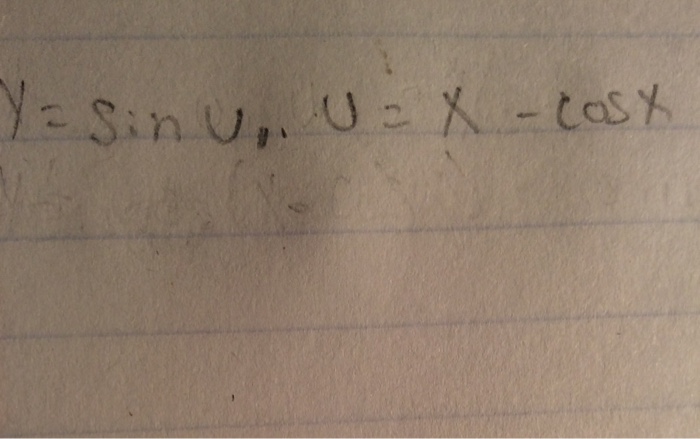 Y = sin U, U = X - cosx